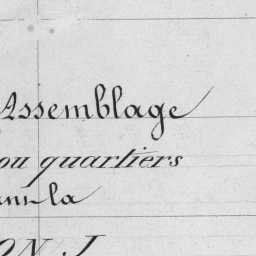 Assemblage
ou quartiers
la
ON J